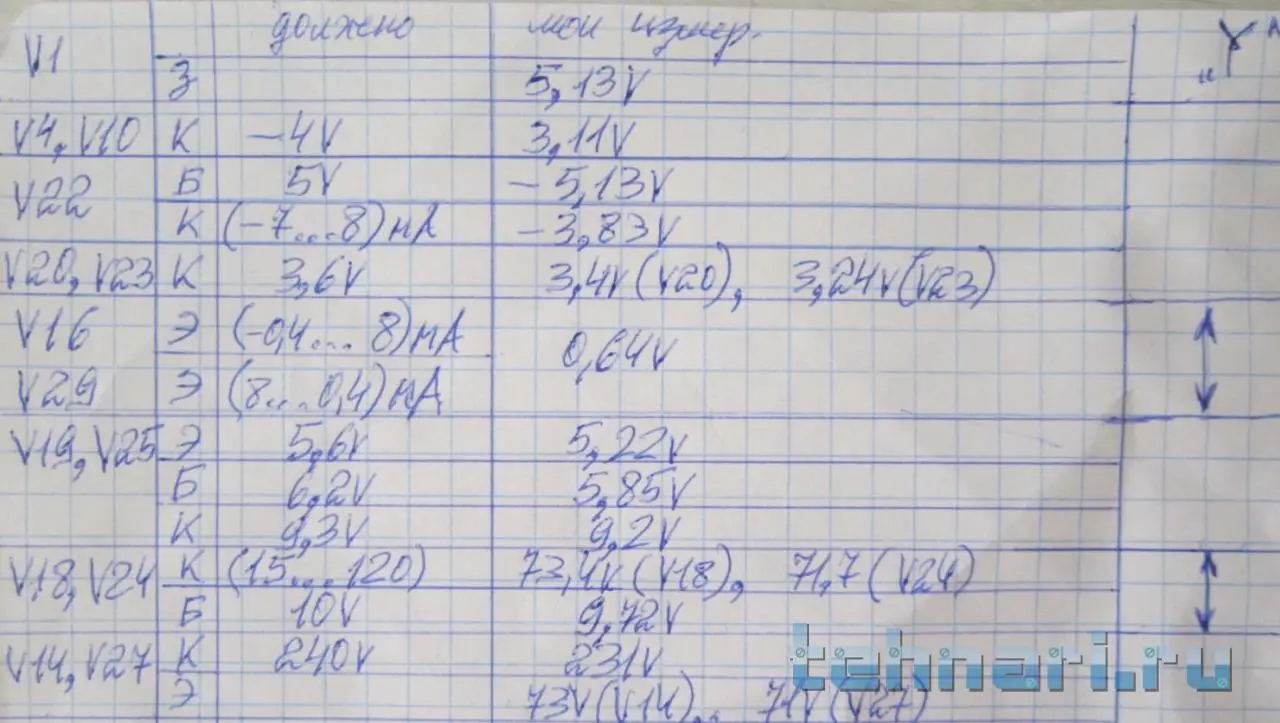 должно мои измер.
V1 З 5,13V "Y"
V4, V10 К –4V 3,11V
V22 Б 5V –5,13V
К (–7...8) мА –3,83V
V20, V23 К 3,6V 3,4V (V20), 3,24V (V23)
V16 Э (–0,4... 8) мА 0,64V
V29 Э (8...0,4) мА
V19, V25 Э 5,6V 5,22V
Б 6,2V 5,85V
К 9,3V 9,2V
V18, V24 К (15...120) 73,4V (V18), 71,7 (V24)
Б 10V 9,72V
V14, V27 К 240V 231V
Э 73V (V14).. 71V (V27)
tehnari.ru